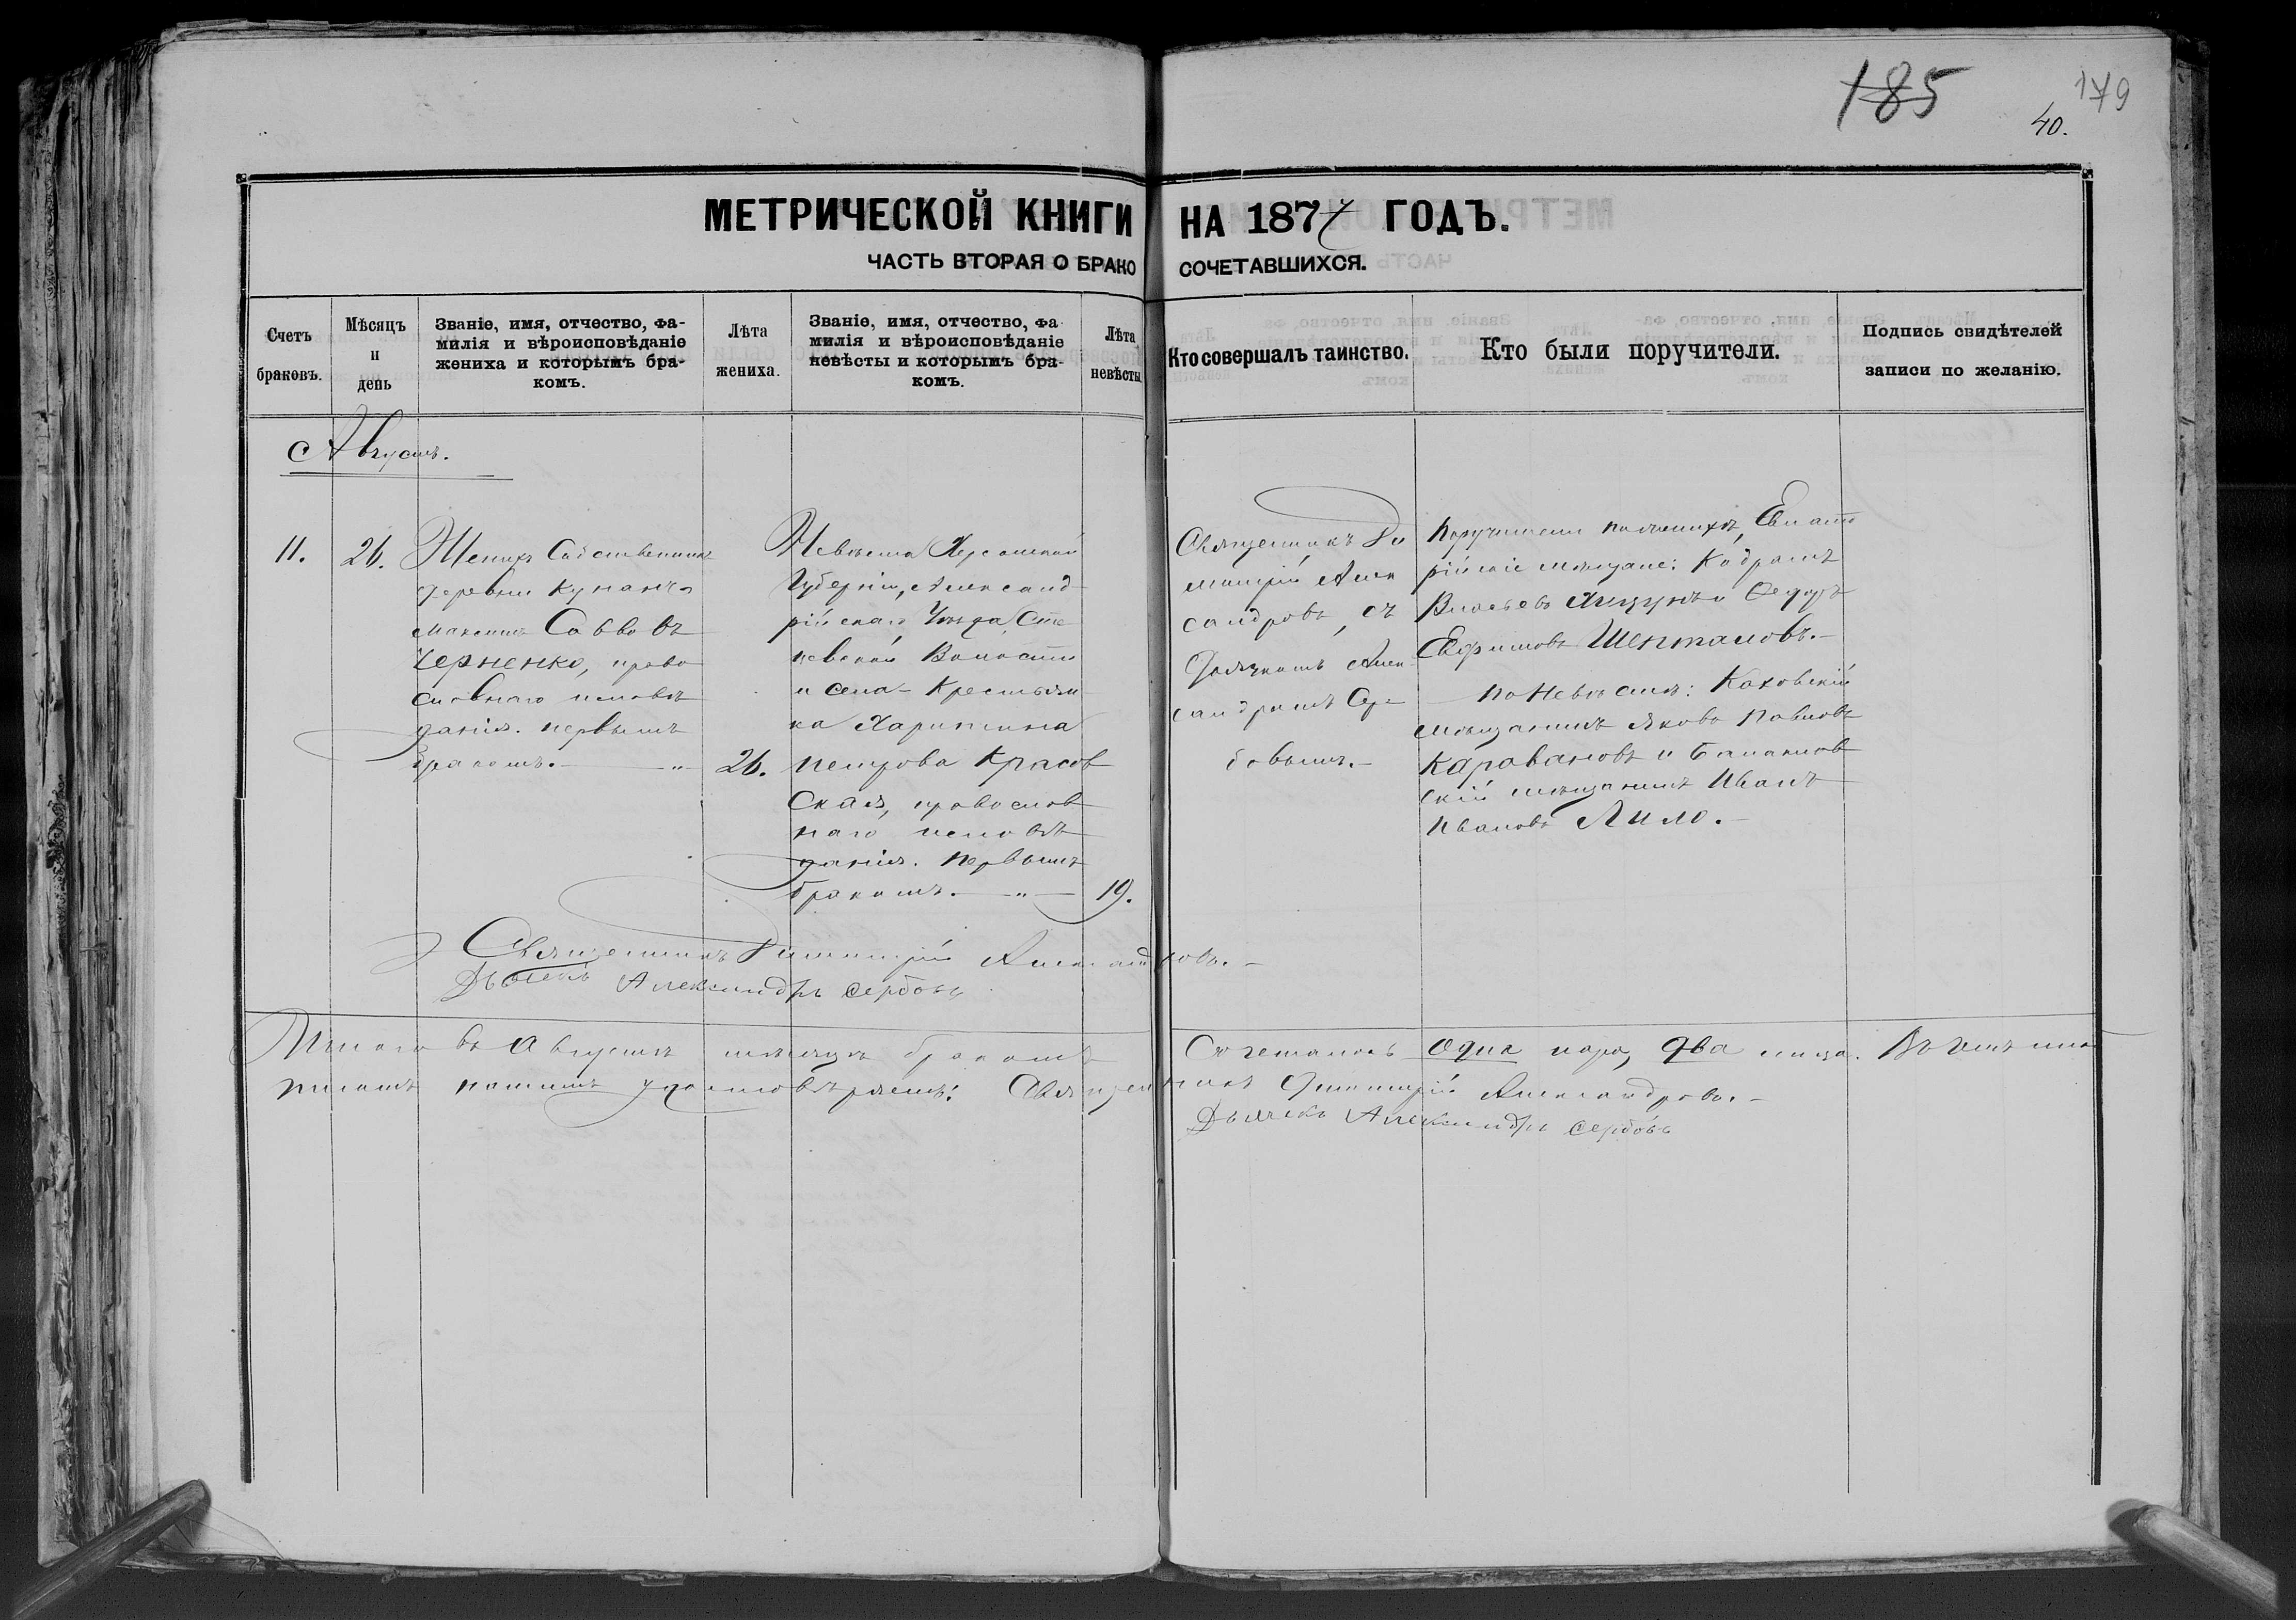 185
179
40.
МЕТРИЧЕСКОЙ КНИГИ НА 1877 ГОДЪ.
ЧАСТЬ ВТОРАЯ О БРАКО СОЧЕТАВШИХСЯ.
Счетъ
браковъ.
Мѣсяцъ
и
день
Званіе, имя, отчество, фа-
милія и вѣроисповѣданіе
жениха и которымъ бра-
комъ.
Лѣта
жениха.
Званіе, имя, отчество, фа
милія и вѣроисповѣданіе
невѣсты и которымъ бра-
комъ.
Лѣта
невѣсты
Кто совершалъ таинство.
Кто были поручители.
Подпись свидѣтелей
записи по желанію.
Августъ.
11.
26.
Женихъ Собственникъ
деревни
Максимъ Савовъ
Черненко, право
славнаго исповѣ
данія. первымъ
бракомъ. — „
26.
Невѣста Херсонской
Губерніи, Александ
рійскаго Уѣзда,
Волости
и села Крестьян
ка Харитина
Петрова Красов
ская, православ
наго исповѣ
данія. Первымъ
бракомъ. — „ —
19.
Священникъ Ди
митрій Алек
сандровъ, съ
Дьячкомъ Алек
сандромъ Сер
бовымъ. —
Поручители по женихѣ, Евпато
рійскіе мѣщане: Кодратъ
Ѳедоръ
Ефимовъ Шепталовъ. —
По Невѣстѣ: Каховскій
мѣщанинъ Яковъ Павловъ
Каравановъ и Балаклав
скій мѣщанинъ Иванъ
Ивановъ Лило. —
Священникъ Димитрій Александровъ. —
Дьячекъ Александръ Сербовъ
Итого въ Августѣ мѣсяцѣ бракомъ Сочеталось Одна пара, два лица. Въ чемъ
подписомъ нашимъ удостовѣряемъ: Священникъ Димитрій Александровъ. —
Дьячекъ Александръ Сербовъ